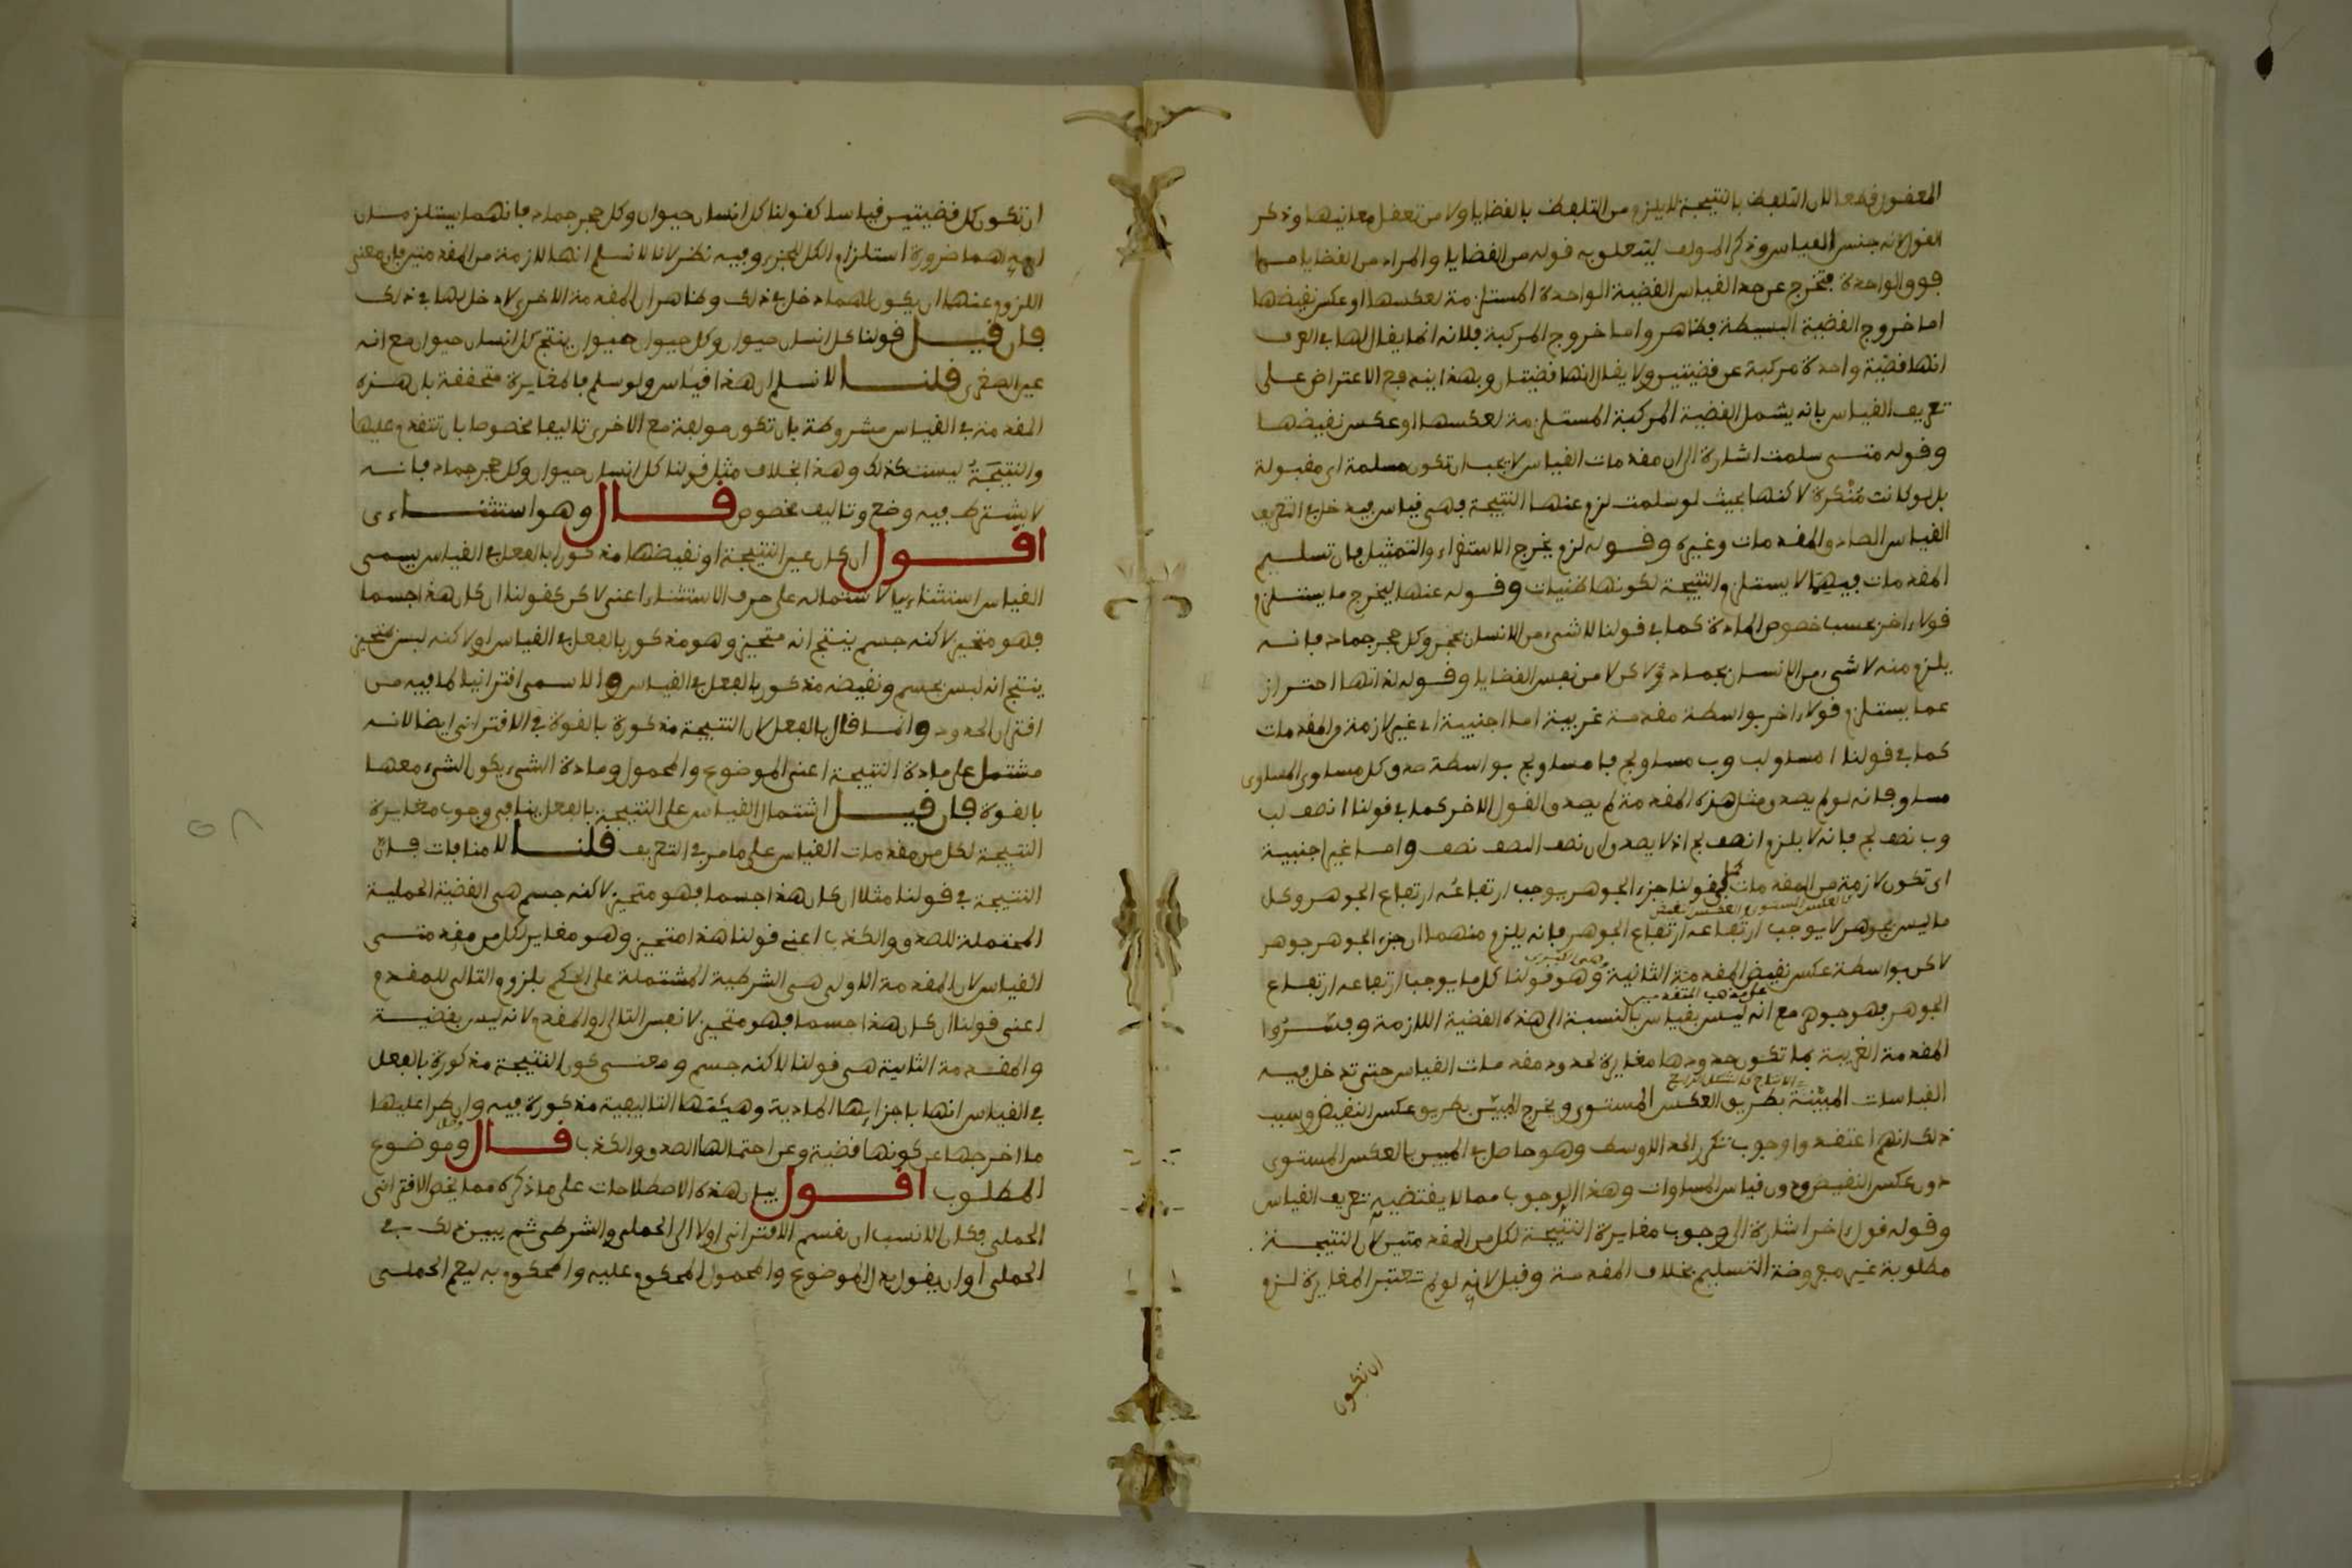 المعقول قطعا لان التلفظ بالنتيجة لا يلزم من التلفظ بالقضايا ولا من تعقل معانيها وذكر
القول لانه جنس القياس وذكر المولف ليتعلق به قوله من القضايا والمراد من القضايا ما
فوق الواحدة فتخرج عن حد القياس القضية الواحدة المستلزمة لعكسها او عكس نقيضها
اما خروج القضية البسيطة فظاهر واما خروج المركبة فلانه انما يقال لها في العرف
انها قضية واحدة مركبة عن قضيتين ولا يقال انها قضيتان وبهذا يندفع الاعتراض على
تعريف القياس بانه يشمل القضية المركبة المستلزمة لعكسها او عكس نقيضها
وقوله متى سلمت اشارة الى ان مقدمات القياس لا يجب ان تكون مسلمة اي مقبولة
بل لو كانت منكرة لاكنها بحيث لو سلمت لزم عنها النتيجة فهي قياس فيدخل في التعريف
القياس الصادق المقدمات وغيره وقوله لزم يخرج الاستقراء والتمثيل فان تسليم
المقدمات فيهما لا يستلزم النتيجة لكونها ظنيات وقوله عنها ليخرج ما يستلزم
قولا اخر بحسب خصوص المادة كما في قولنا لا شيء من الانسان بحجر وكل حجر جماد فانه
يلزم منه لا شيء من الانسان بجماد ولاكن لا من نفس القضايا وقوله لذاتها احتراز
عما يستلزم قولا اخر بواسطة مقدمة غريبة اما اجنبية اي غير لازمة من المقدمات
كما في قولنا ا مساو لب وب مساو لج فا مساو لج بواسطة صدق كل مساوي المساوي
مساو فانه لو لم يصدق مثل هذه المقدمة لم يصدق القول الاخر كما في قولنا ا نصف لب
وب نصف لج فانه لا يلزم ا نصف لج اذ لا يصدق ان نصف النصف نصف واما غير اجنبية
اي تكون لازمة من المقدمات كما في قولنا جزء الجوهر يوجب ارتفاعه ارتفاع الجوهر وكل
ما ليس بجوهر لا يوجب ارتفاعه ارتفاع الجوهر فانه يلزم منهما ان جزء الجوهر جوهر
لاكن بواسطة عكس نقيض المقدمة الثانية وهو قولنا كل ما يوجب ارتفاعه ارتفاع
وهي الكبرى
الجوهر فهو جوهر مع انه ليس بقياس بالنسبة الى هذه القضية اللازمة وفسروا
على مذهب المتقدمين
المقدمة الغريبة بما تكون حدودها مغايرة لحدود مقدمات القياس حتى تدخل فيه
القياسات المبينة بطريق العكس المستوي ويخرج المبين بطريق عكس النقيض وسبب
ذلك انهم اعتقدوا وجوب تكرر الحد الاوسط وهو حاصل في المبين بالعكس المستوي
دون عكس النقيض ودون قياس المساوات وهذا الوجوب مما لا يقتضيه تعريف القياس
وقوله قول اخر اشارة الى وجوب مغايرة النتيجة لكل من المقدمتين لان النتيجة
مطلوبة غير مفروضة التسليم بخلاف المقدمة وقيل لانه لو لم تعتبر المغايرة لزم
ان تكون
ان تكون كل قضيتين قياسا كقولنا كل انسان حيوان وكل حجر جماد فانهما يستلزمان
احداهما ضرورة استلزام الكل للجزء وفيه نظر لانا لا نسلم انها لازمة من المقدمتين فان معنى
اللزوم عنها ان يكون لهما دخل في ذلك وظاهر ان المقدمة الاخرى لا دخل لها في ذلك
فان قيل قولنا كل انسان حيوان وكل حيوان حيوان ينتج كل انسان حيوان مع انه
عين الصغرى قلنا لا نسلم ان هذا قياس ولو سلم فالمغايرة متحققة بان هذه
المقدمة في القياس مشروطة بان تكون مولفة مع الاخرى تاليفا مخصوصا بان تتقدم عليها
والنتيجة ليست كذلك وهذا بخلاف مثل قولنا كل انسان حيوان وكل حجر جماد فانه
لا يشترط فيه وضع وتاليف مخصوص قال وهو استثناءي
اقول ان كان عين النتيجة او نقيضها مذكورا بالفعل في القياس يسمى
القياس استثناءيا لاشتماله على حرف الاستثناء اعني لاكن كقولنا ان كان هذا جسما
فهو متحيز لاكنه جسم ينتج انه متحيز وهو مذكور بالفعل في القياس او لاكنه ليس بمتحيز
ينتج انه ليس بجسم ونقيضه مذكور بالفعل في القياس والا سمي اقترانيا لما فيه من
اقتران الحدود وانما قال بالفعل لان النتيجة مذكورة بالقوة في الاقتراني ايضا لانه
مشتمل على مادة النتيجة اعني الموضوع والمحمول ومادة الشيء يكون الشيء معها
بالقوة فان قيل اشتمال القياس على النتيجة بالفعل ينافي وجوب مغايرة
النتيجة لكل من مقدمات القياس على ما مر في التعريف قلنا لا منافات فان
النتيجة في قولنا مثلا ان كان هذا جسما فهو متحيز لاكنه جسم هي القضية الحملية
المحتملة للصدق والكذب اعني قولنا هذا متحيز وهو مغاير لكل من مقدمتي
القياس لان المقدمة الاولى هي الشرطية المشتملة على الحكم بلزوم التالي للمقدم
اعني قولنا ان كان هذا جسما فهو متحيز لا نفس التالي او المقدم لانه ليس بقضية
والمقدمة الثانية هي قولنا لاكنه جسم ومعنى كون النتيجة مذكورة بالفعل
في القياس انها باجزايها المادية وهيئتها التاليفية مذكورة فيه وان طرا عليها
ما اخرجها عن كونها قضية وعن احتمالها الصدق والكذب قال وموضوع
المطلوب اقول بيان هذه الاصطلاحات على ما ذكره مما يخص الاقتراني
الحملي فكان الانسب ان يقسم الاقتراني اولا الى الحملي والشرطي ثم يبين ذلك في
الحملي او ان يقول بدل الموضوع والمحمول المحكوم عليه والمحكوم به ليعم الحملي